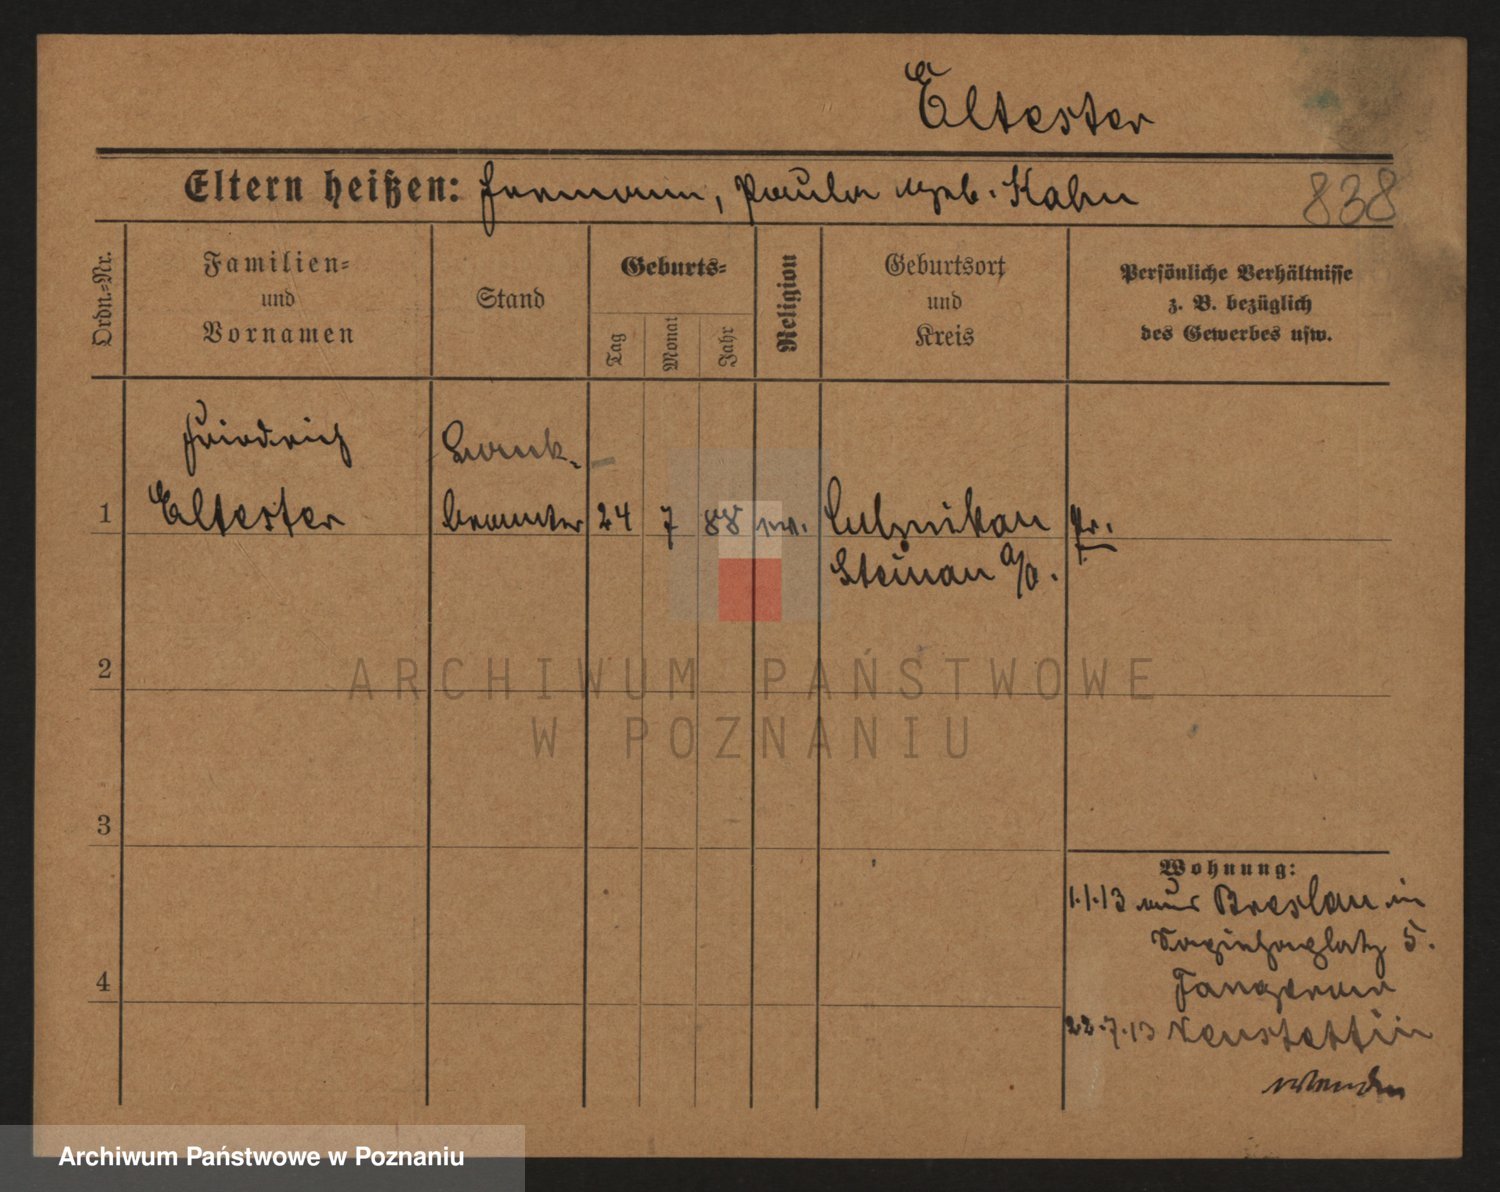 Eltester
Eltern heißen: Hermann, Paula geb. Kahn
838
Ordn.-Nr.
Familien-
und
Vornamen
Stand
Geburts-
Tag
Monat
Jahr
Religion
Geburtsort
und
Kreis
Persönliche Verhältnisse
z. B. bezüglich
des Gewerbes usw.
Friedrich
Bank-
1 Eltester beamter 24 7 88 Pr.
Steinau a/O.
2
ARCHIWUM PAŃSTWOWE
W POZNANIU
3
Wohnung:
1.1.13 aus Breslau in
5.
4
22.7.13 Neustettin
wenden
Archiwum Państwowe w Poznaniu